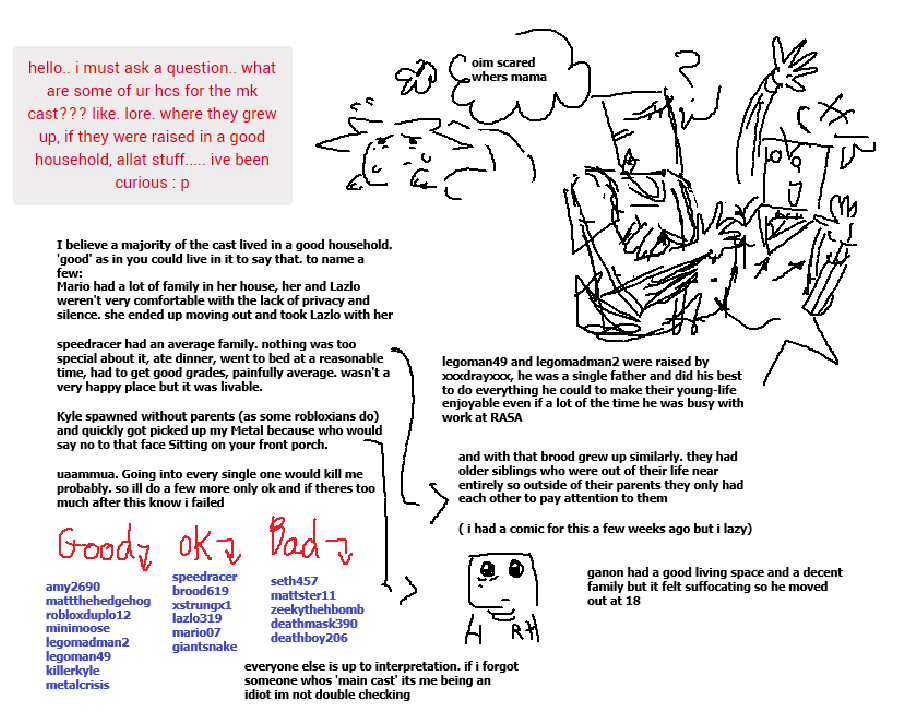 hello.. i must ask a question.. what
are some of ur hcs for the mk
cast??? like. lore. where they grew
up, if they were raised in a good
household, allat stuff..... ive been
curious : p
oim scared
whers mama
I believe a majority of the cast lived in a good household.
'good' as in you could live in it to say that. to name a
few:
Mario had a lot of family in her house, her and Lazlo
weren't very comfortable with the lack of privacy and
silence. she ended up moving out and took Lazlo with her
speedracer had an average family. nothing was too
special about it, ate dinner, went to bed at a reasonable
time, had to get good grades, painfully average. wasn't a
very happy place but it was livable.
Kyle spawned without parents (as some robloxians do)
and quickly got picked up my Metal because who would
say no to that face Sitting on your front porch.
uaammua. Going into every single one would kill me
probably. so ill do a few more only ok and if theres too
much after this know i failed
legoman49 and legomadman2 were raised by
xxxdrayxxx, he was a single father and did his best
to do everything he could to make their young-life
enjoyable even if a lot of the time he was busy with
work at RASA
and with that brood grew up similarly. they had
older siblings who were out of their life near
entirely so outside of their parents they only had
each other to pay attention to them
( i had a comic for this a few weeks ago but i lazy)
ganon had a good living space and a decent
family but it felt suffocating so he moved
out at 18
Good
amy2690
mattthehedgehog
robloxduplo12
minimoose
legomadman2
legoman49
killerkyle
metalcrisis
OK
speedracer
brood619
xstrungx1
lazlo319
mario07
giantsnake
Bad
seth457
mattster11
zeekythehbomb
deathmask390
deathboy206
everyone else is up to interpretation. if i forgot
someone whos 'main cast' its me being an
idiot im not double checking